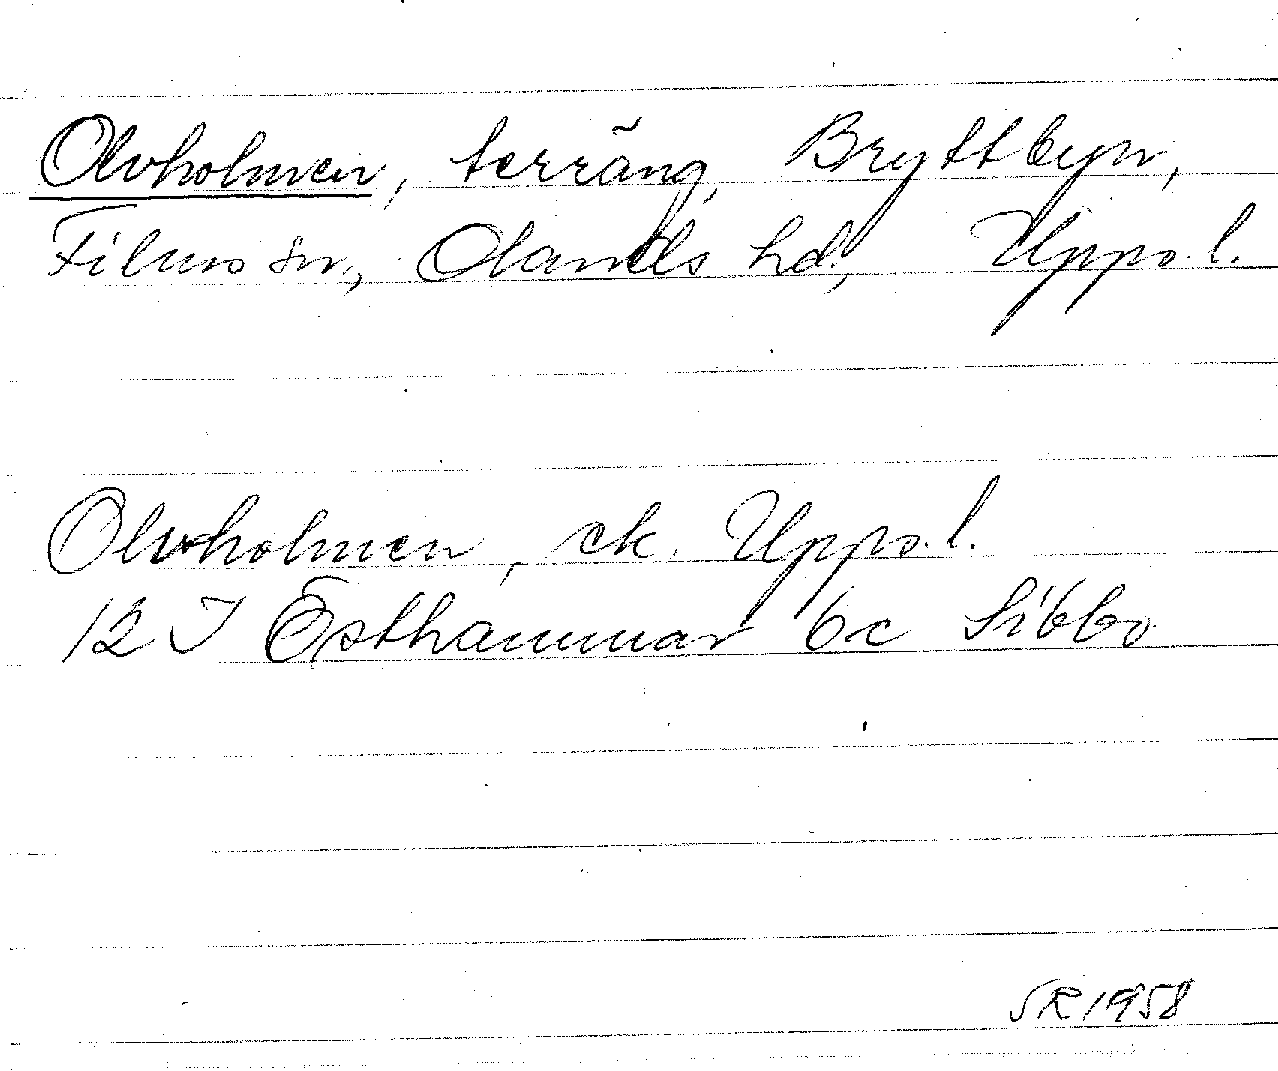 Olvholmen, terräng, Bryttbyn,
Films sn, Olands hd, Uppl.
Olvholmen, ek. Uppl.
12 I Östhammar 6c Sibbo
SR 1958